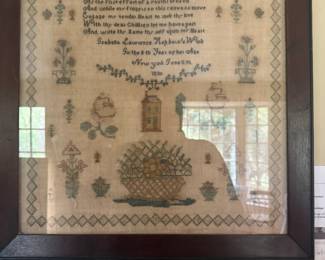 As the first effort of a
And while my fingers on this canvas move
Engage my tender Heart to seek thy love
With thy dear Children let me have a part
And write thy Name thy self upon my Heart
Lawrance Work
In the 8 th Year of her Age
New york